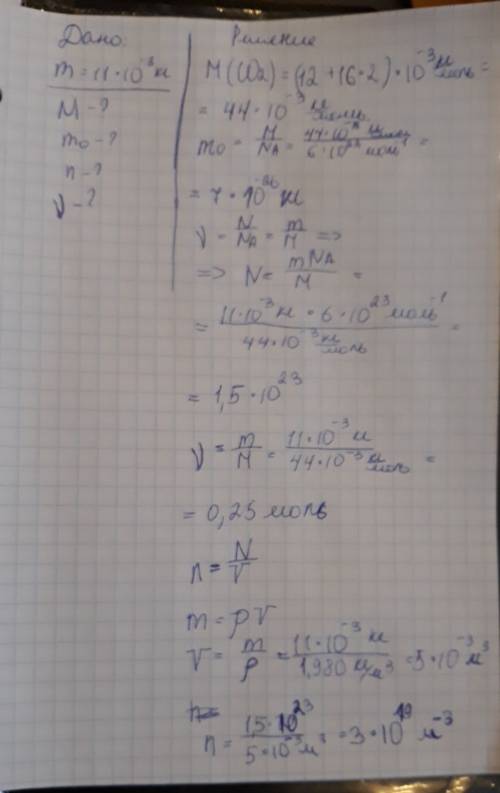 Дано:
m = 11·10⁻³ кг
M - ?
m₀ - ?
n - ?
ν - ?
Решение
M(CO₂) = (12 + 16·2)·10⁻³ кг/моль =
= 44·10⁻³ кг/моль
m₀ = M/NA = 44·10⁻³ кг/моль / 6·10²³ моль⁻¹ =
= 7·10⁻²⁶ кг
ν = N/NA = m/M =>
=> N = mNA/M =
= 11·10⁻³ кг · 6·10²³ моль⁻¹ / 44·10⁻³ кг/моль =
= 1,5·10²³
ν = m/M = 11·10⁻³ кг / 44·10⁻³ кг/моль =
= 0,25 моль
n = N/V
m = ρV
V = m/ρ = 11·10⁻³ кг / 1,980 кг/м³ = 5·10⁻³ м³
n =
n = 1,5·10²³ / 5·10⁻³ м³ = 3·10¹⁹ м⁻³